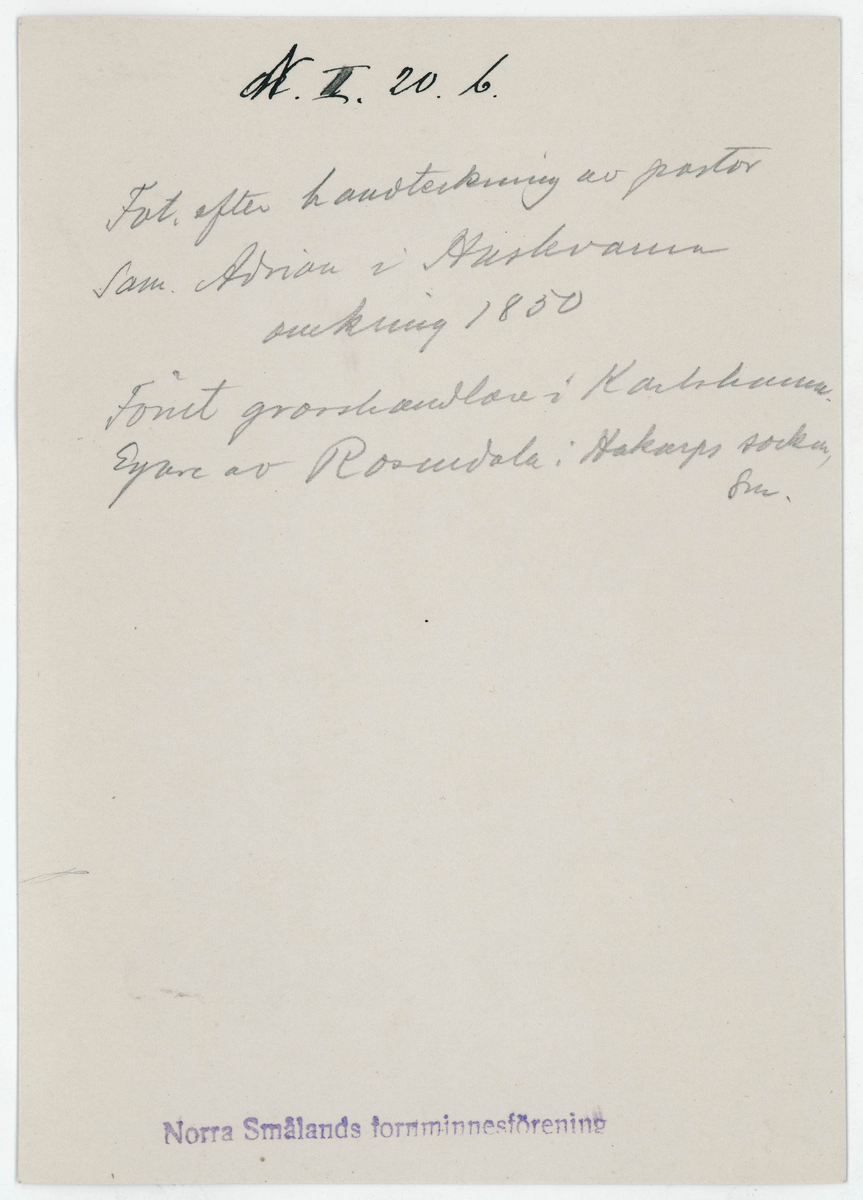 N. II. 20. 6.
Fot. efter handteckning av pastor
Sam. Adrian i Huskvarna
omkring 1850
Förut grosshandlare i Karlshamn.
Egare av Rosendala i Hakarps socken,
Sm.
Norra Smålands fornminnesförening